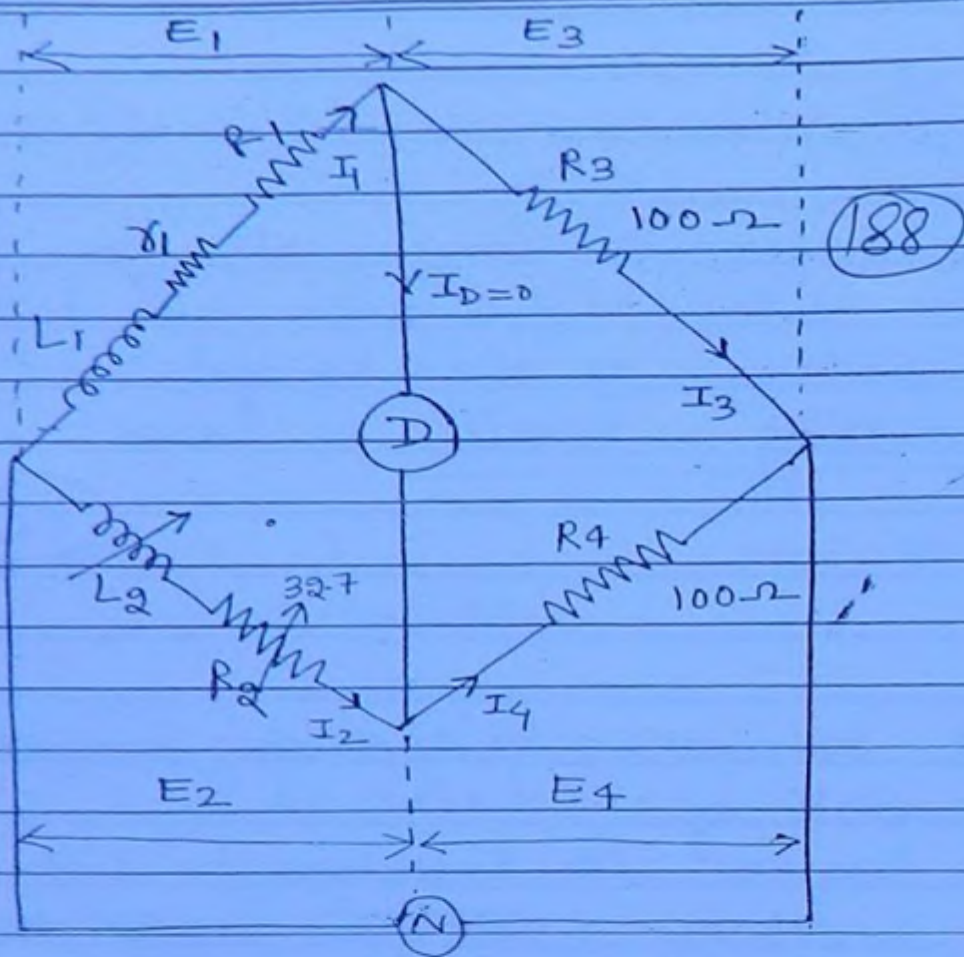 E1 E3
R1
I1
R3
100Ω
188
r1
ID=0
L1
I3
D
R4
L2
32.7
100Ω
R2
I2
I4
E2 E4
N